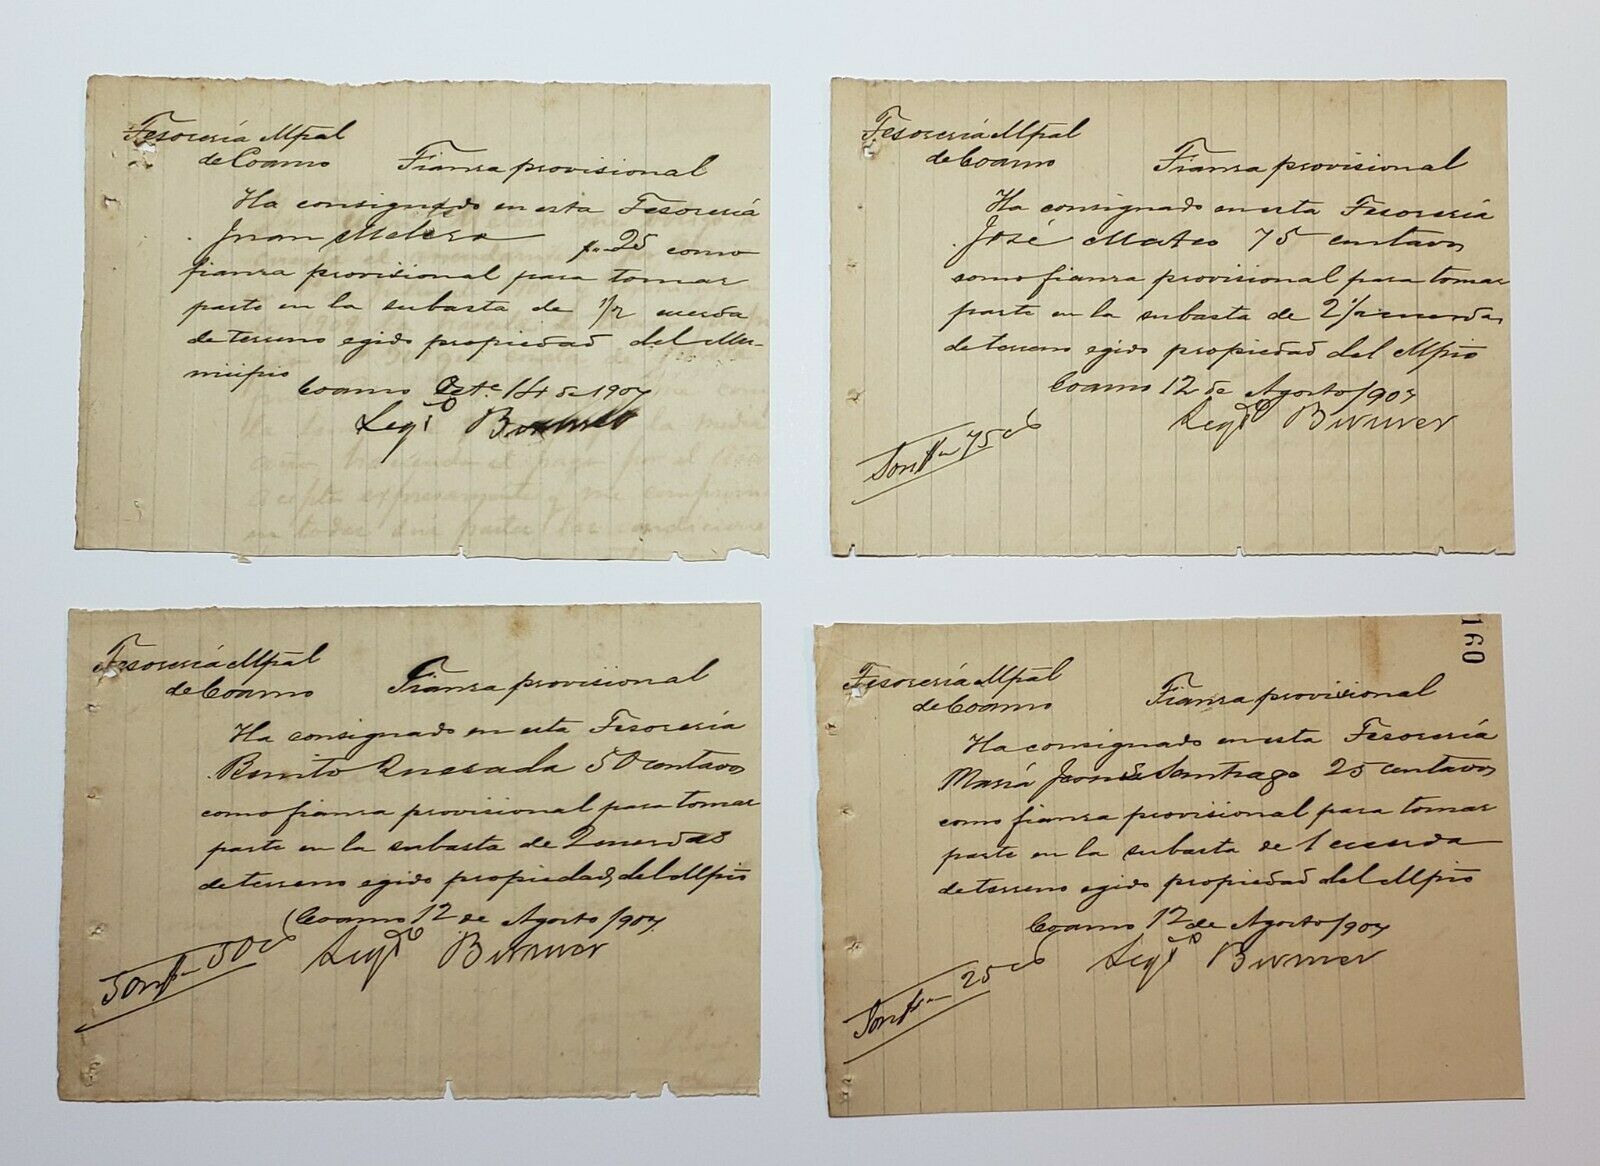 Tesorería Mpal
de Coamo Fianza provisional
Ha consignado en esta Tesorería
Juan $.. 25 como
fianza provisional para tomar
parte en la subasta de 1/2 cuerda
de terreno egido propiedad del Mu-
nicipio
Coamo 14 de 1907
Tesorería Mpal
de Coamo Fianza provisional
Ha consignado en esta Tesorería
José Mateo 75 centavos
como fianza provisional para tomar
parte en la subasta de 2 1/2 cuerdas
de terreno egido propiedad del Mpio
Coamo 12 de Agosto/907
Son $.. 75 cs
Tesorería Mpal
de Coamo Fianza provisional
Ha consignado en esta Tesorería
Benito Quesada 50 centavos
como fianza provisional para tomar
parte en la subasta de 2 cuerdas
de terreno egido propiedad del Mpio
Coamo 12 de Agosto/907
Son $.. 50 cs
160
Tesorería Mpal
de Coamo Fianza provisional
Ha consignado en esta Tesorería
María Santiago 25 centavos
como fianza provisional para tomar
parte en la subasta de 1 cuerda
de terreno egido propiedad del Mpio
Coamo 12 de Agosto/907
Son $.. 25 cs